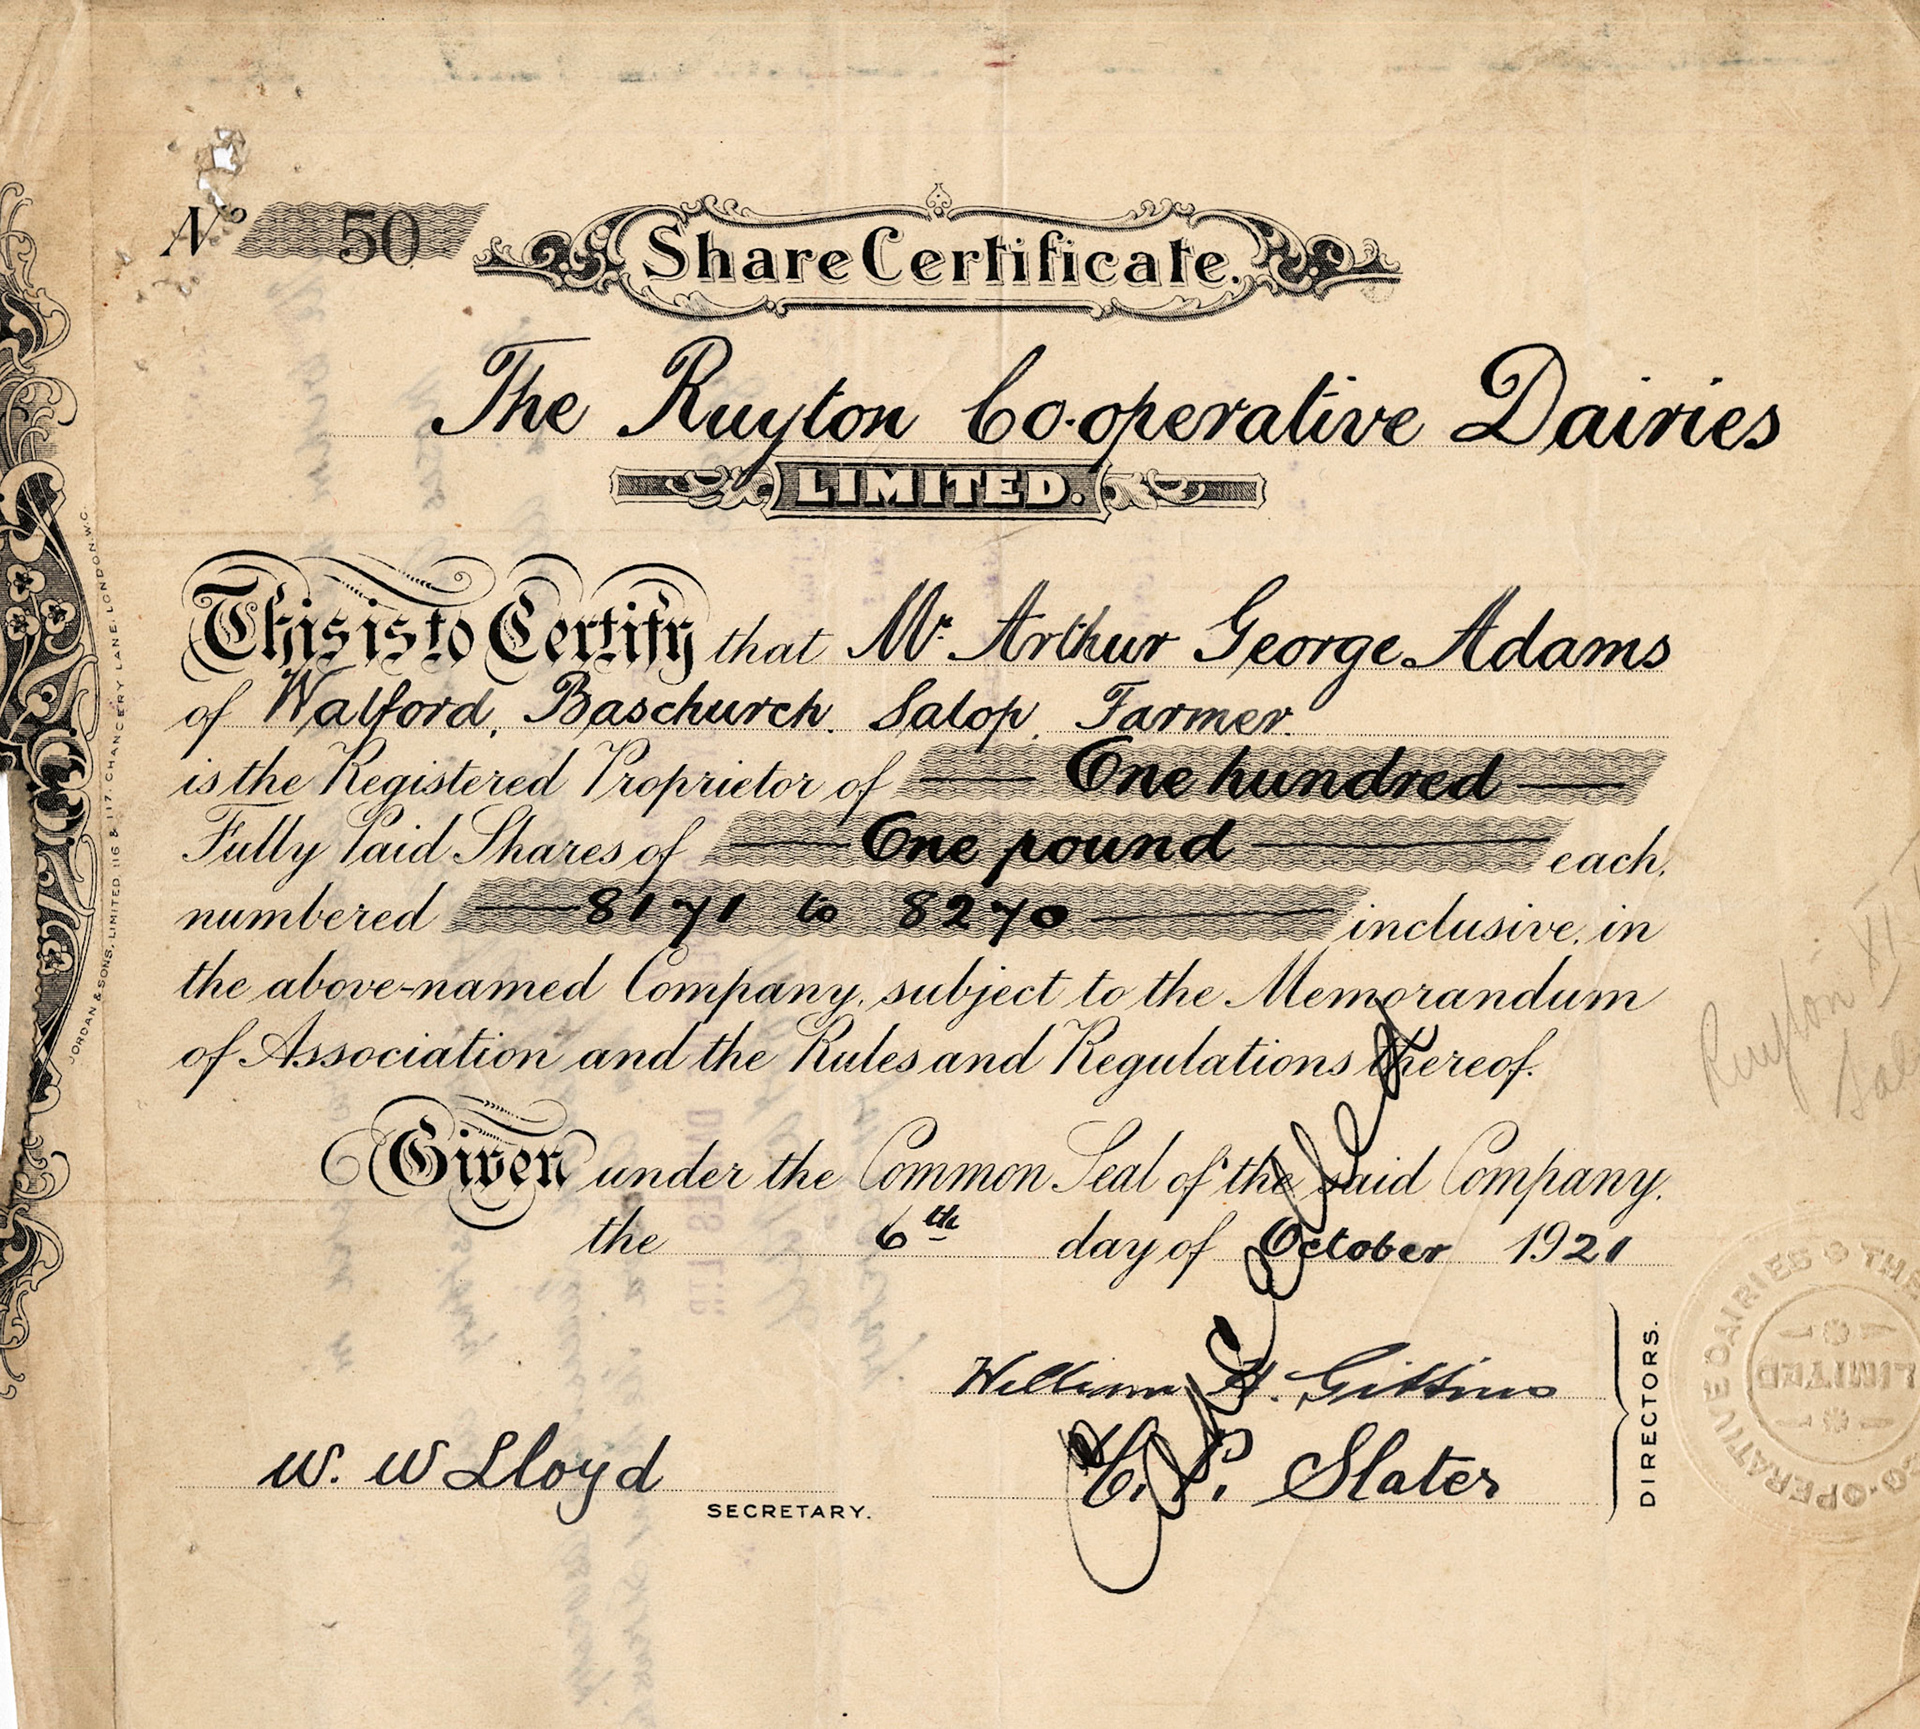 Nº 50
Share Certificate.
The Ruyton Co-operative Dairies
LIMITED.
This is to Certify that Mr. Arthur George Adams
of Walford, Baschurch. Salop. Farmer.
is the Registered Proprietor of One hundred
Fully Paid Shares of One pound each,
numbered 8171 to 8270 inclusive, in
the above-named Company, subject to the Memorandum
of Association and the Rules and Regulations thereof.
Given under the Common Seal of the said Company,
the 6th day of October 1921
William H. Gittins
C. P. Slater
DIRECTORS.
W. W Lloyd
SECRETARY.
Cancelled
JORDAN & SONS, LIMITED 116 & 117, CHANCERY LANE, LONDON. W.C.
Ruyton XI
CO-OPERATIVE DAIRIES THE
LIMITED